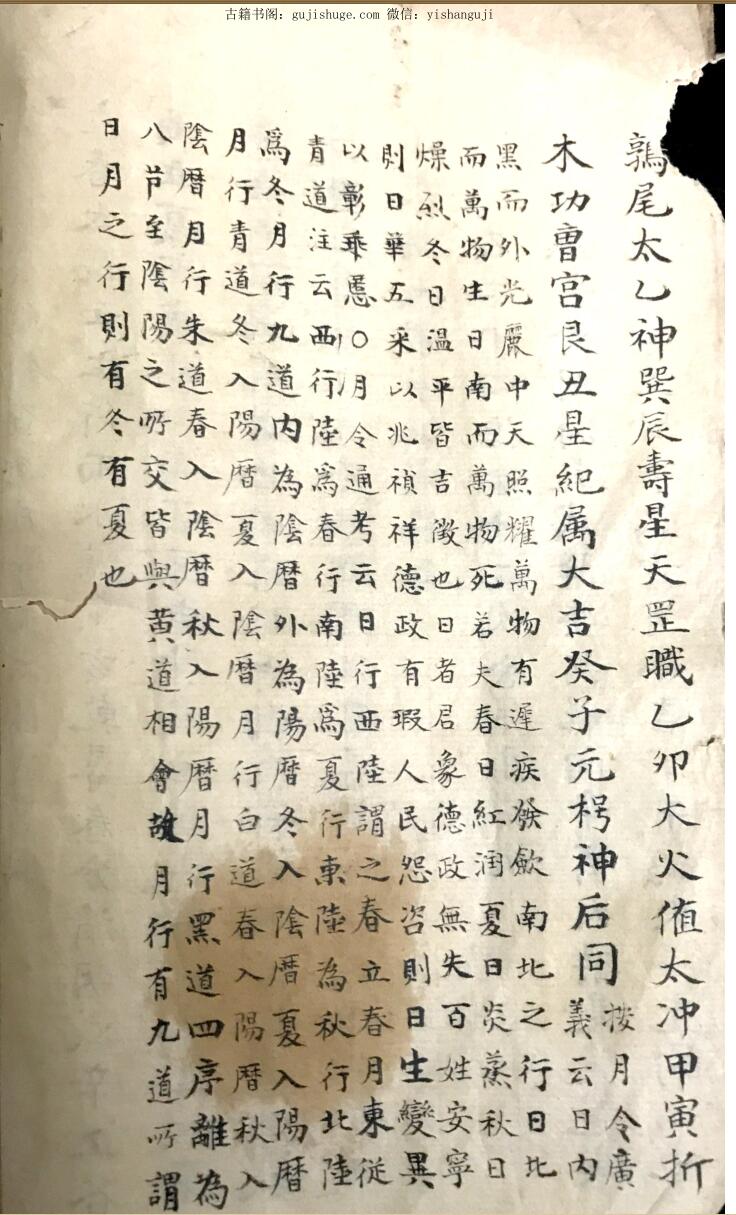 古籍书阁：gujishuge.com 微信：yishanguji
鶉尾太乙神巽辰壽星天罡職乙卯大火值太冲甲寅折
木功曹宫艮丑星紀属大吉癸子元枵神后同按月令廣
義云日内
黑而外光麗中天照耀萬物有遲疾發歛南北之行日北
而萬物生日南而萬物死若夫春日紅润夏日炎蒸秋日
燥烈冬日温平皆吉徵也日者君象德政無失百姓安寧
則日華五采以兆禎祥德政有瑕人民怨咨則日生變異
以彰乖慝〇月令通考云日行西陸謂之春立春月東従
青道注云西行陸爲春行南陸爲夏行東陸為秋行北陸
爲冬月行九道内為陰曆外為陽曆冬入陰曆夏入陽曆
月行青道冬入陽曆夏入陰曆月行白道春入陽曆秋入
陰曆月行朱道春入陰曆秋入陽曆月行黑道四序離為
八节至陰陽之所交皆與黄道相會故月行有九道所謂
日月之行則有冬有夏也